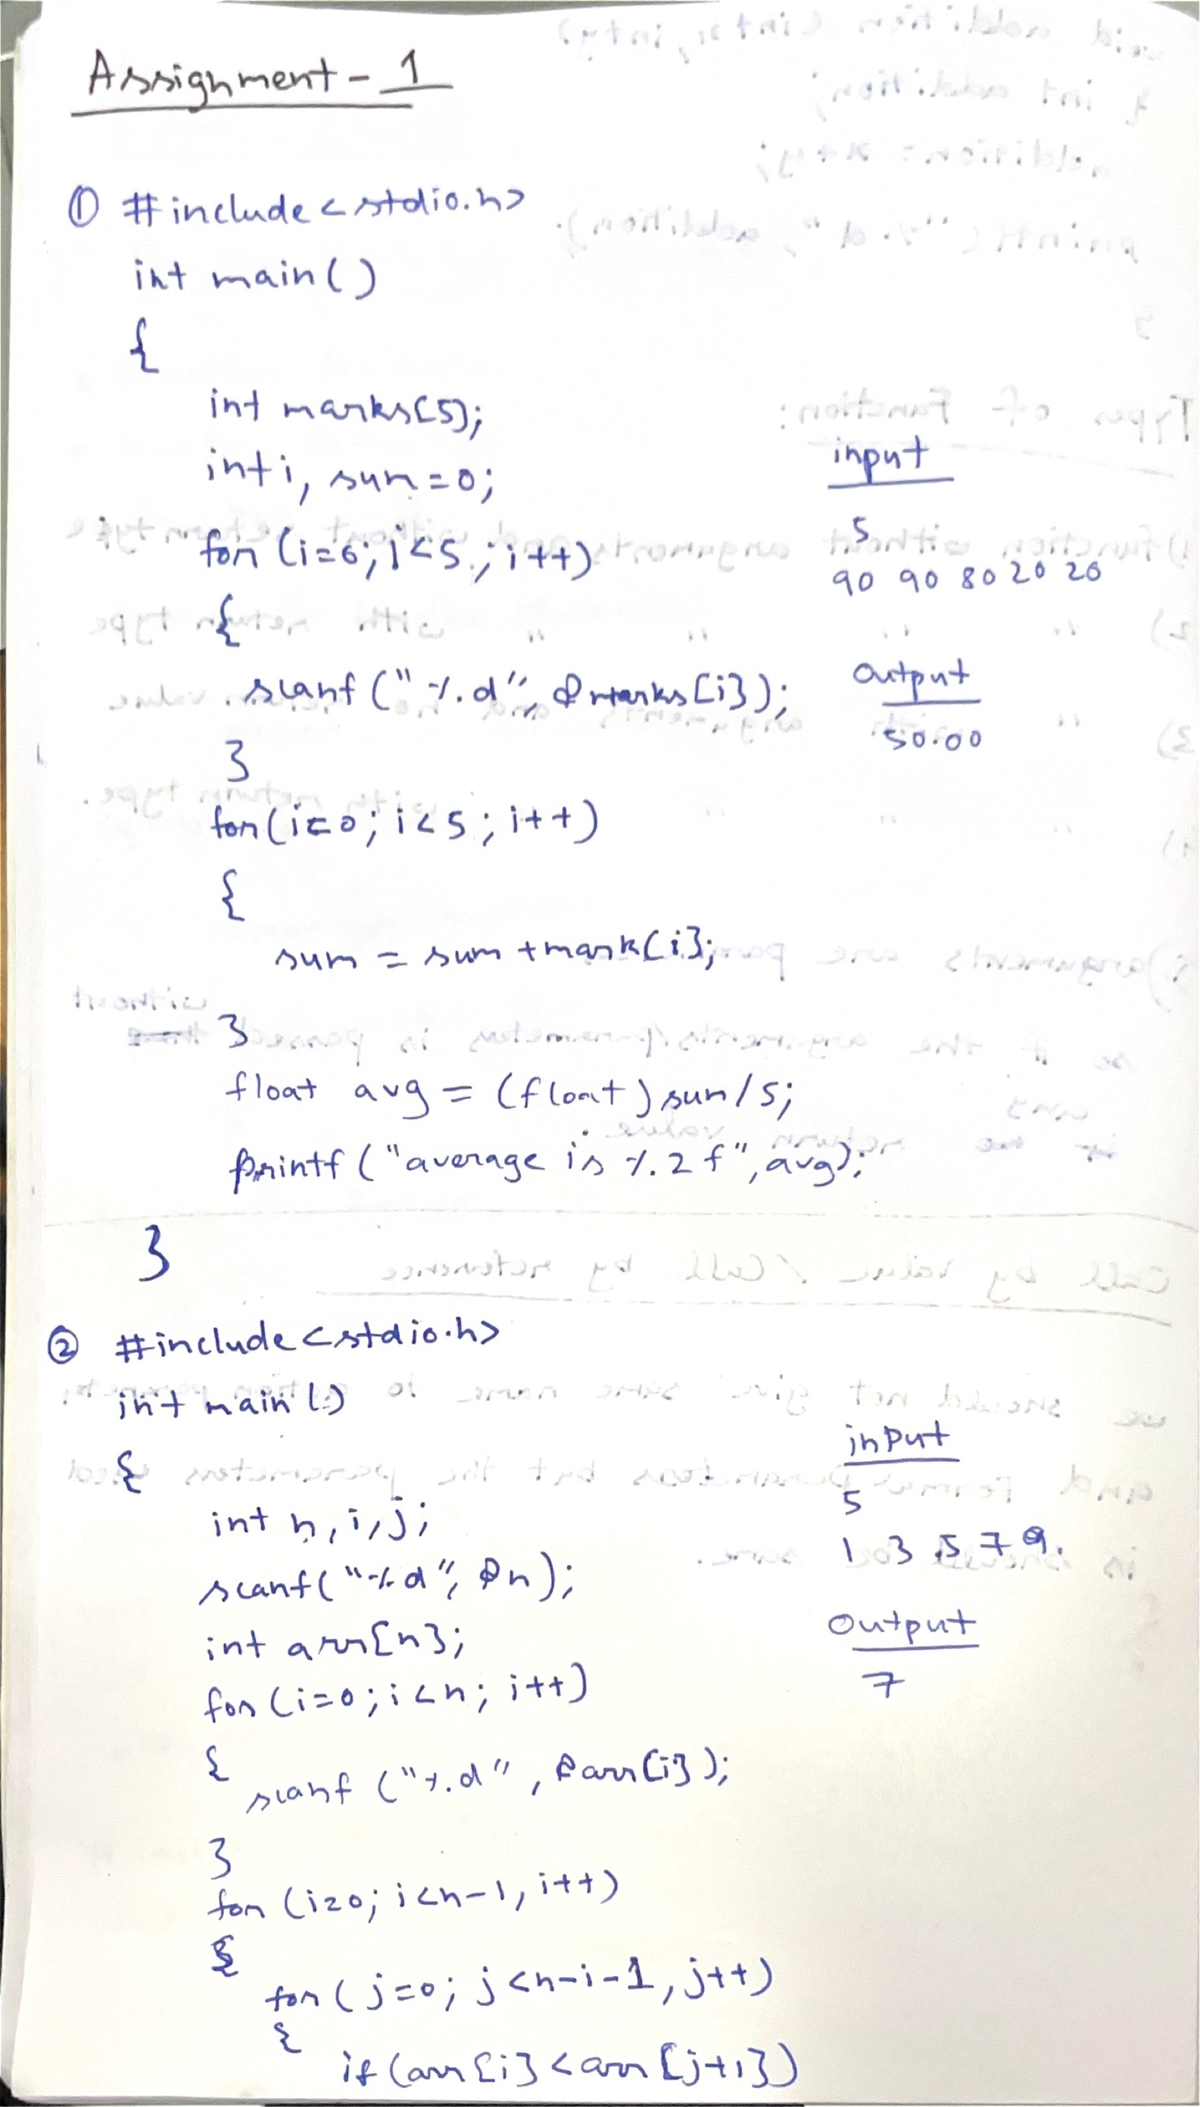 Assignment - 1
① #include <stdio.h>
int main()
{
int marks[5];
int i, sum=0;
for (i=0; i<5; i++)
{
scanf ("%d", &marks[i]);
}
for(i=0; i<5; i++)
{
sum = sum +mark[i];
}
float avg = (float) sum/5;
printf ("average is %.2f", avg);
}
input
5
90 90 80 20 20
output
50.00
② #include <stdio.h>
int main()
{
int n, i, j;
scanf("%d", &n);
int arr[n];
for (i=0; i<n; i++)
{
scanf ("%d", &arr[i]);
}
for (i=0; i<n-1, i++)
{
for (j=0; j<n-i-1, j++)
{
if (arr[i] < arr[j+1])
input
5
1 3 5 7 9.
output
7